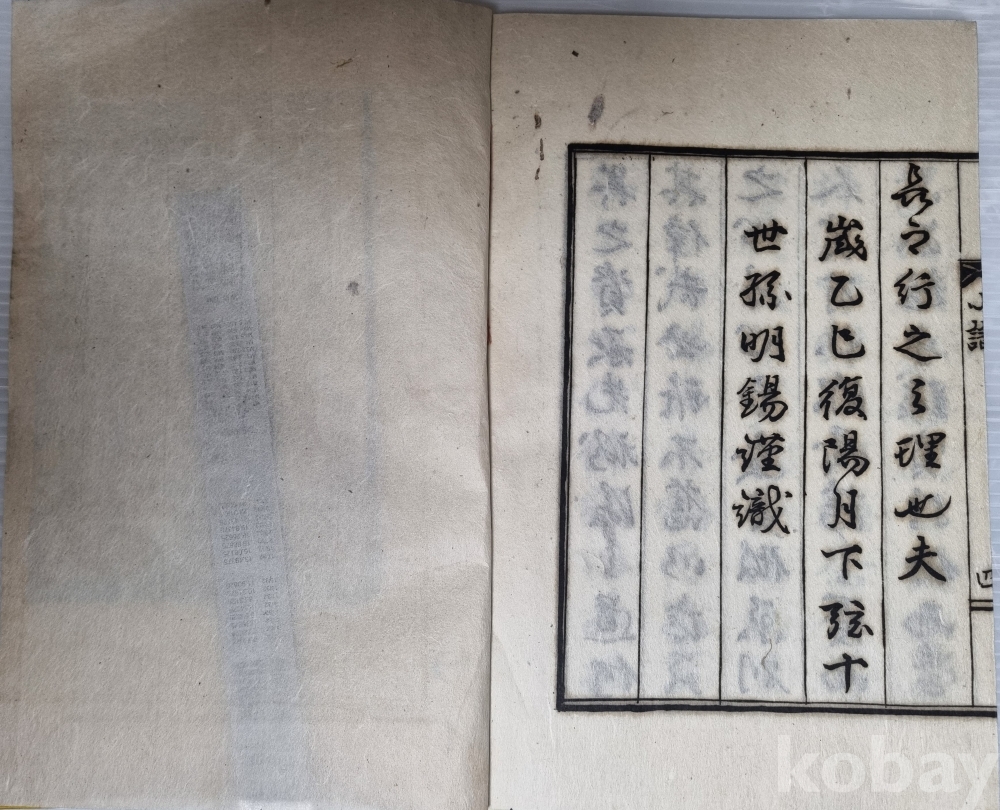 長之行之之理也夫
歲乙巳復陽月下弦十
世孫明錫謹識
四
kobay